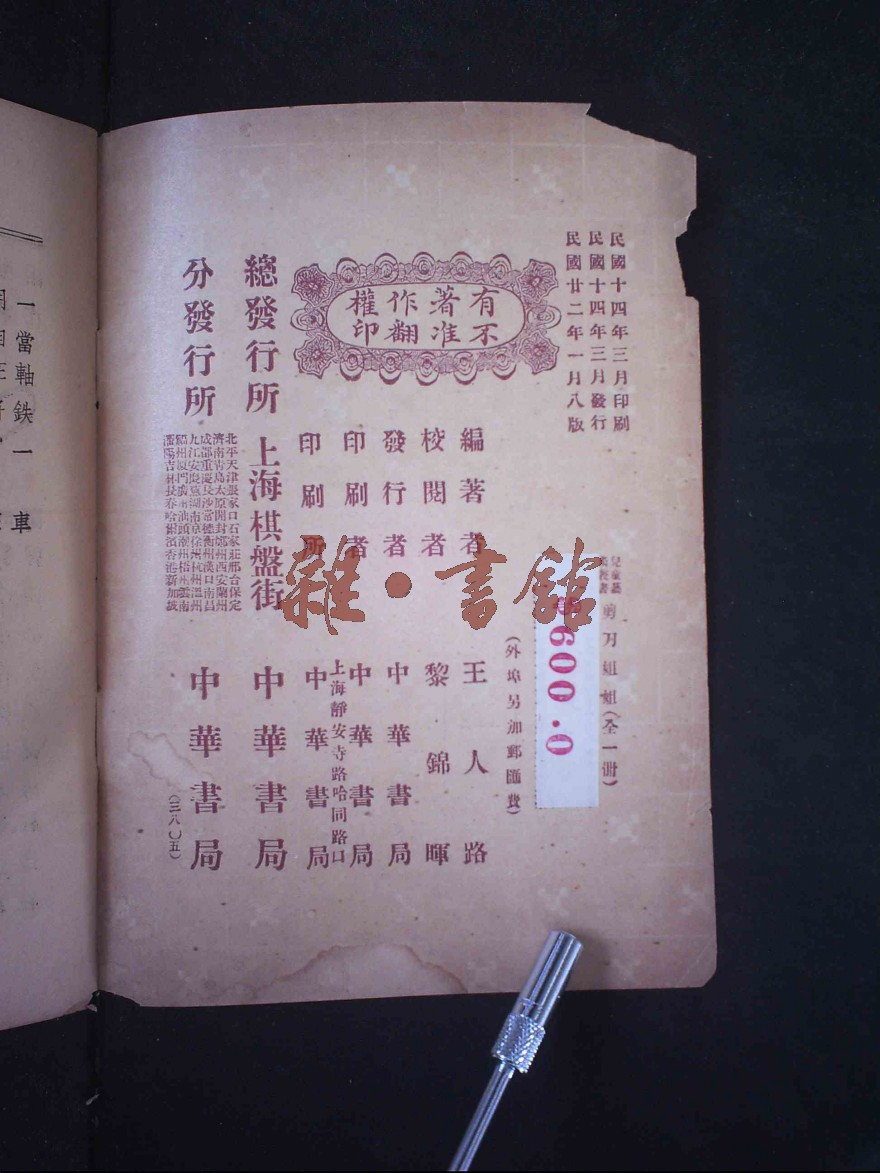 民國十四年三月印刷
民國十四年三月發行
民國廿二年一月八版
剪刀姐姐(全一冊)
600.0
(外埠另加郵匯費)
有著作權
不准翻印
編著者 王人路
校閱者 黎錦暉
發行者 中華書局
印刷者 中華書局
上海靜安寺路哈同路口
印刷所 中華書局
總發行所 上海棋盤街 中華書局
分發行所 中華書局
北平天津張家口石家莊邢台保定
濟南青島太原開封鄭州西安蘭州
成都重慶長沙常德衡州漢口南昌
九江安慶蕪湖南京徐州杭州溫州
福州廈門廣州汕頭潮州梧州雲南
瀋陽吉林長春哈爾濱香港新加坡
(三八〇五)
雜·書館
一當軸鉄一 車